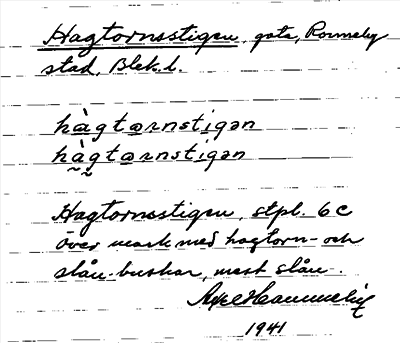 Hagtornsstigen, gata, Ronneby
stad, Blek. l.
hàgtornstigən
hàgtornstigən
Hagtornsstigen, stpl. 6c
över mark med hagtorn- och
slån-buskar, mest slån-.
1941